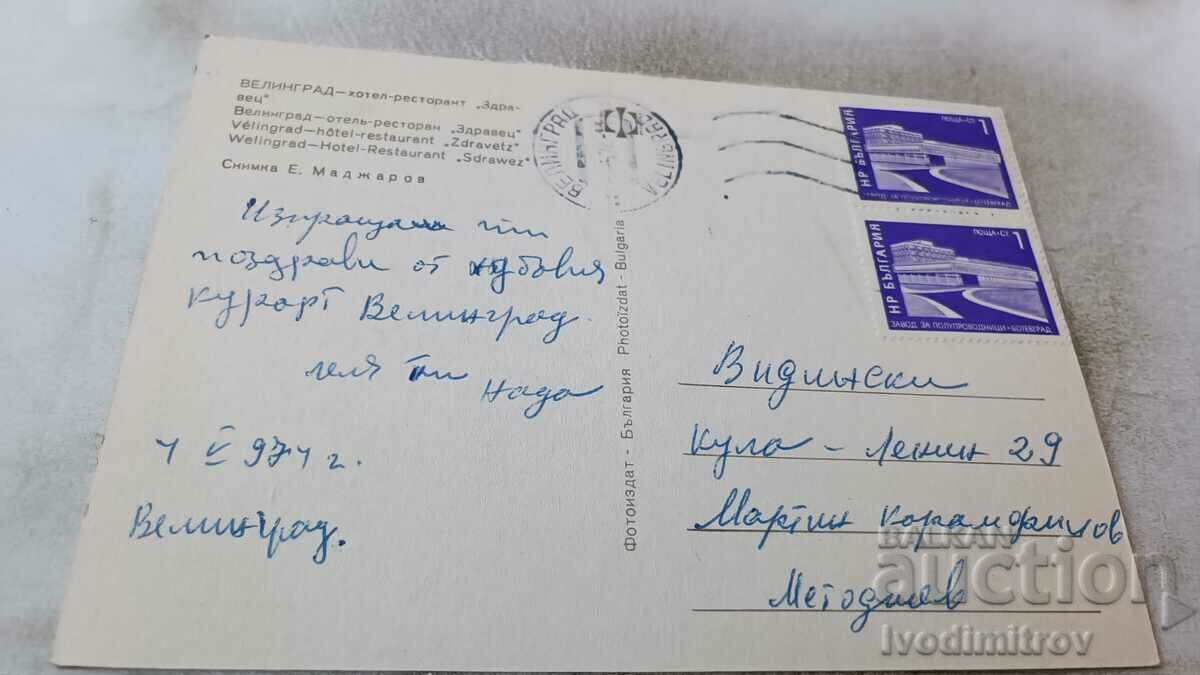 ВЕЛИНГРАД—хотел-ресторант „Здра-
вец"
Велинград—отель-ресторан „Здравец"
Vélingrad—hôtel-restaurant „Zdravetz"
Welingrad—Hotel-Restaurant „Sdrawez"
Снимка Е. Маджаров
Изпращам ти
поздрави от
курорт Велинград.
леля ти Нада
4 V 974 г.
Велинград.
Фотоиздат - България Photoïzdat - Bulgaria
ВЕЛИНГРАД
VELINGRAD
НР БЪЛГАРИЯ
ПОЩА•СТ. 1
НР БЪЛГАРИЯ
ПОЩА•СТ. 1
ЗАВОД ЗА ПОЛУПРОВОДНИЦИ-БОТЕВГРАД
Видински
Кула – Ленин 29
Мартин
Методиев
BALKAN
auction
Ivodimitrov